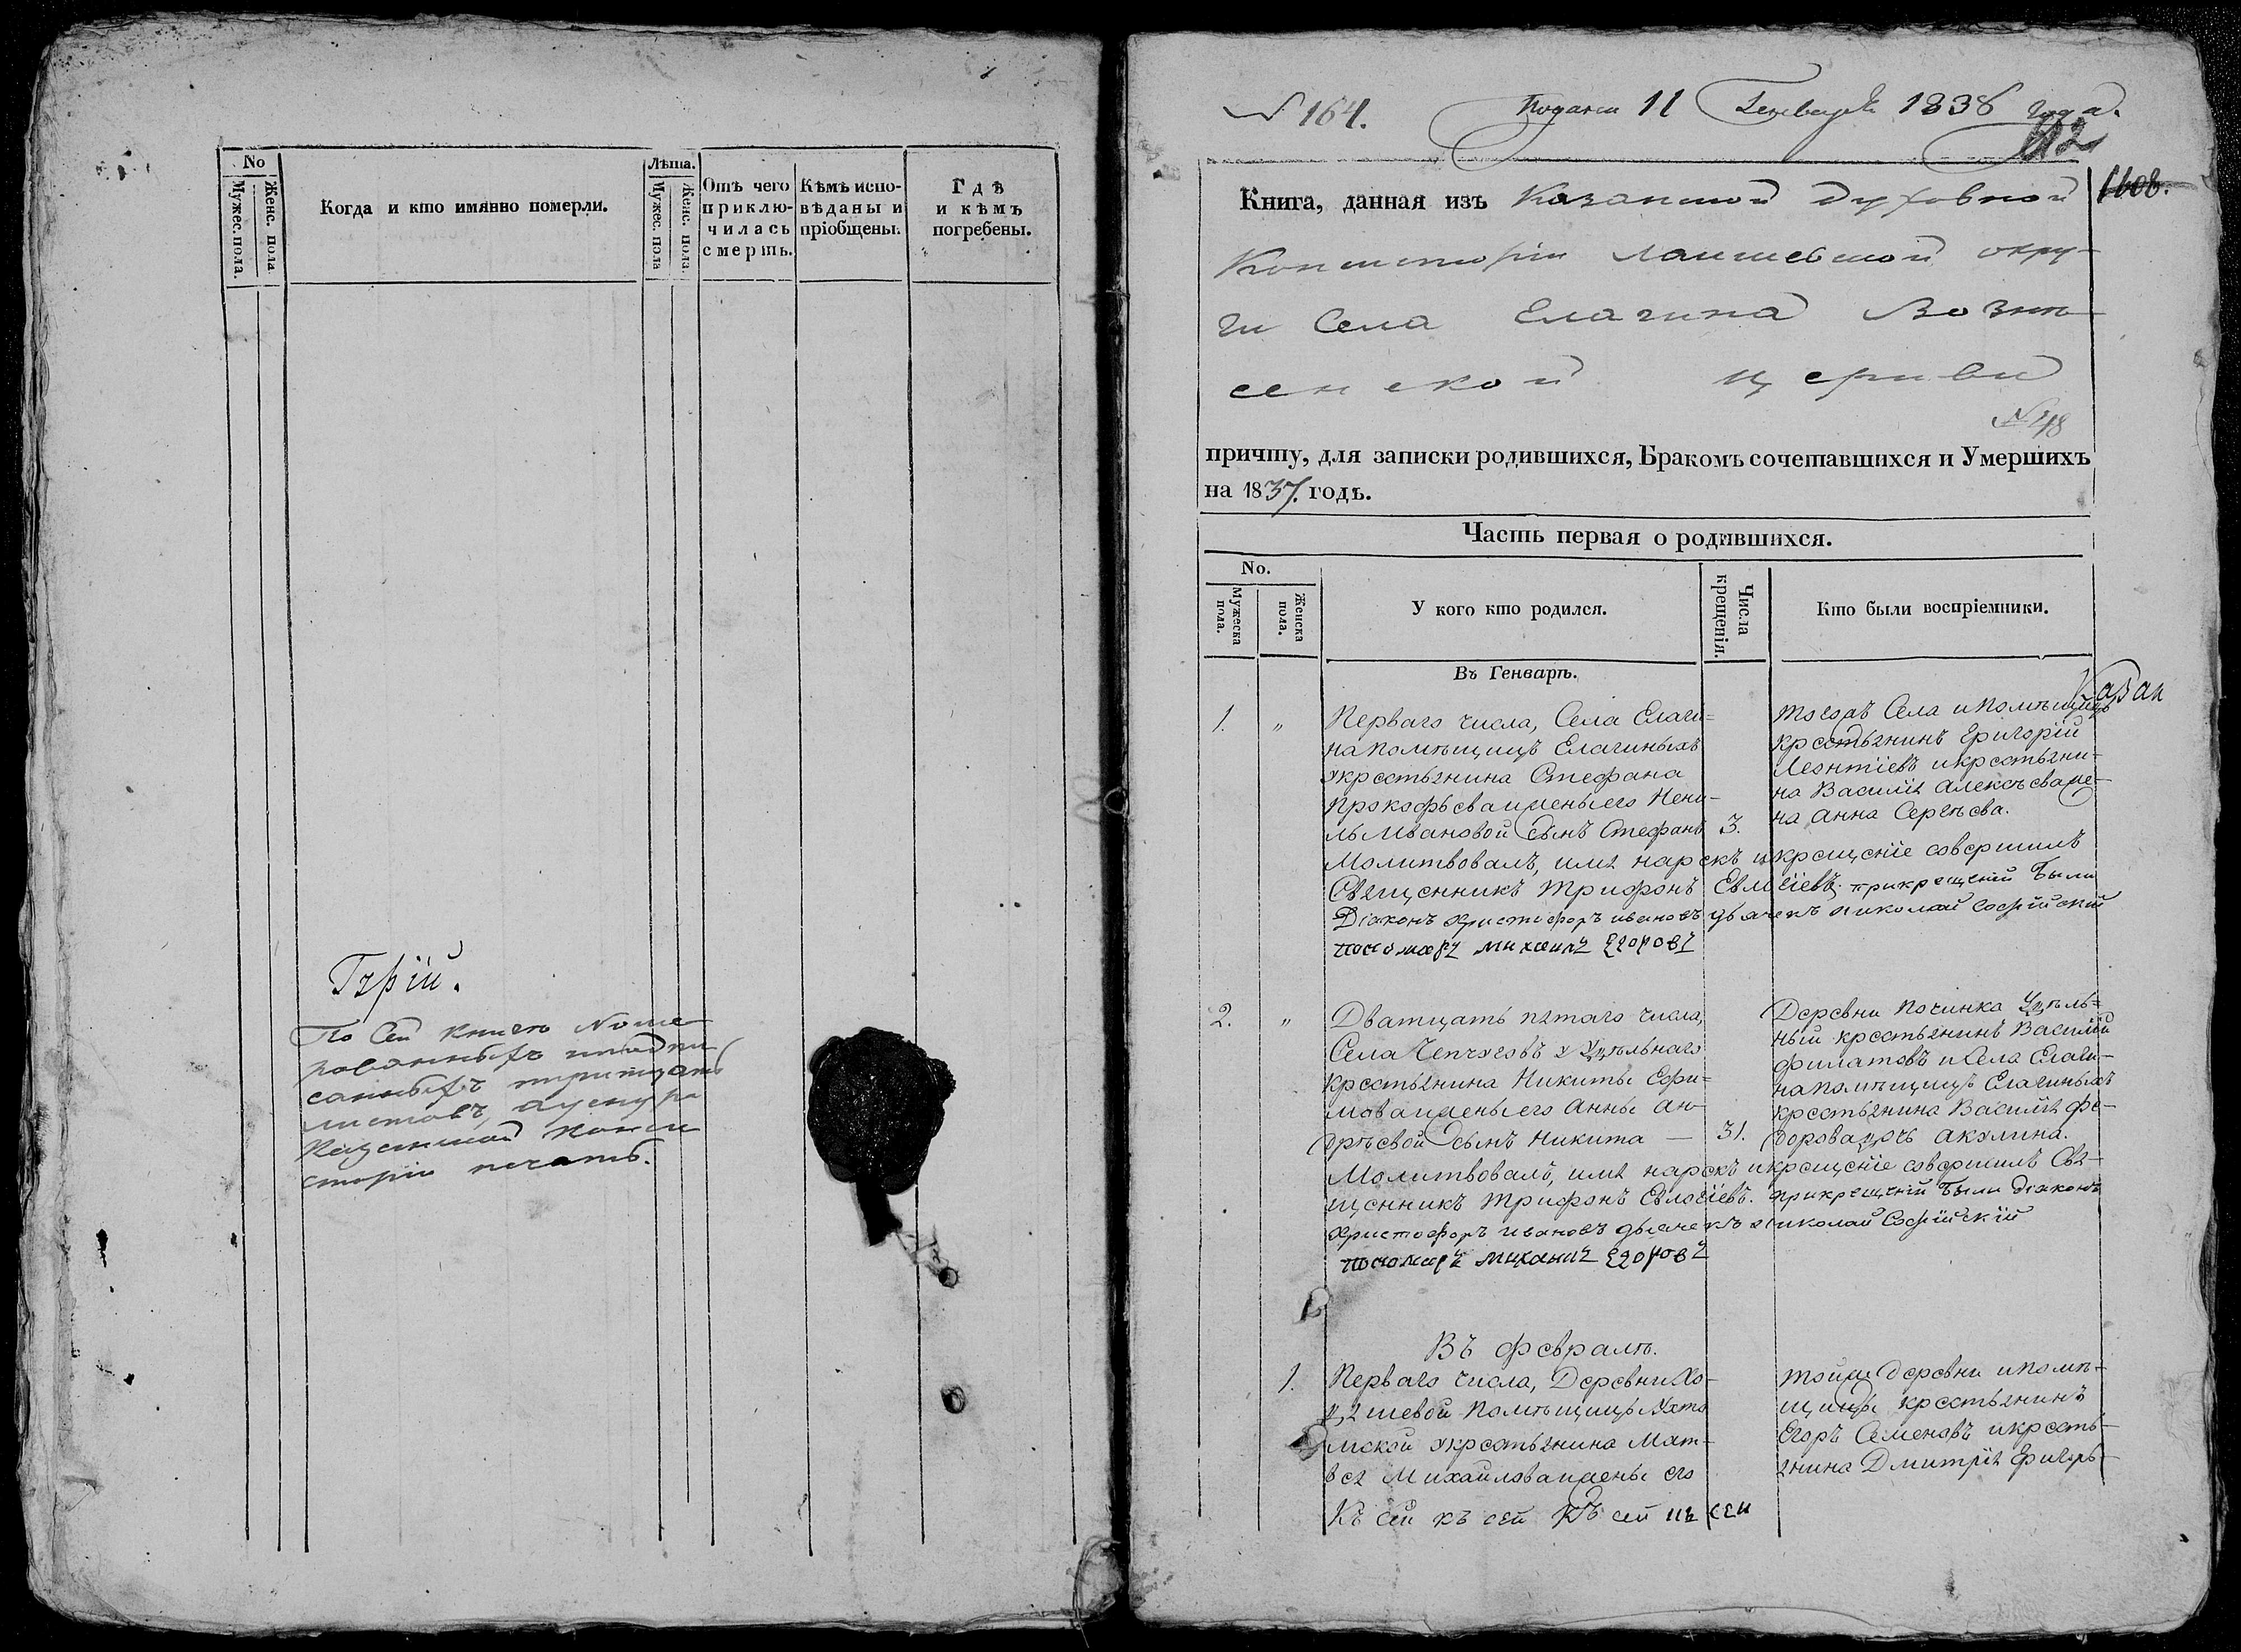 No
Мужес. пола.
Женс. пола
Когда и кто имянно померли.
Лѣта.
Мужес. пола
Женс. пола.
Отъ чего
приклю-
чилась
смерть.
Кѣмъ испо-
вѣданы и
пріобщены.
Гдѣ
и кѣмъ
погребены.
По Сей книге Номе
рованныхъ
листовъ,
Казанской Конси
сторіи печать.
№ 164.
Подана 11 Генваря 1838 года.
1608.
Книга, данная изъ Казанской Духовной
Консисторіи Лаишевской окру-
ги Села Елагина Возне-
сенской церкви
№ 48
причту, для записки родившихся, Бракомъ сочетавшихся и Умершихъ
на 1837. годъ.
Часть первая о родившихся.
No.
Мужеска
пола.
Женска
пола.
У кого кто родился.
Числа
крещенія.
Кто были воспріемники.
Въ Генварѣ.
Казан
1. „ Перваго числа, Села Елаги=
на помѣщицъ Елагиныхъ
у крестьянина Стефана
Прокофьева и жены его Нени-
лы Ивановой сынъ Стефанъ 3.
тогожъ Села и помѣщицъ
крестьянинъ Григорій
Леонтіевъ и крестьяни-
на Василія Алексѣева же-
на Анна Сергѣева.
Молитвовалъ, имя нарекъ и крещеніе совершилъ
Священникъ Трифонъ Евлогіевъ. при крещеніи были
Діаконъ Христофоръ Ивановъ дьячекъ Николай Софійскій
пономарь Михаилъ Егоровъ
2. „ Дватцать пятаго числа,
Села Чепчуговъ у Удѣльнаго
крестьянина Никиты Ефи=
мова и жены его Анны Ан-
дреевой сынъ Никита — 31.
Деревни Починка Удѣль=
ный крестьянинъ Василій
Филатовъ и Села Елаги-
на помѣщицъ Елагиныхъ
крестьянина Василія Фе-
дорова дочь Акулина.
Молитвовалъ, имя нарекъ и крещеніе совершилъ Свя-
щенникъ Трифонъ Евлогіевъ. при крещеніи были Діаконъ
Христофоръ Ивановъ дьячекъ Николай Софійскій
пономарь Михаилъ Егоровъ
Въ Февралѣ.
1. Перваго числа, Деревни
помѣщицы
у крестьянина Мат-
вея Михайлова и жены его
тойже деревни и помѣ-
щицы крестьянинъ
Егоръ Семеновъ и кресть-
янина Дмитрія Григорь-
Къ сей къ сей къ сей къ сей